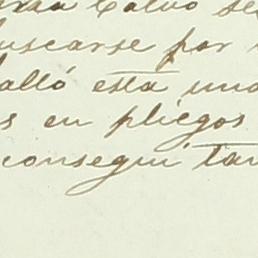 Calvo se
uscarse por
alló esta una
s en pliegos
conseguí tan